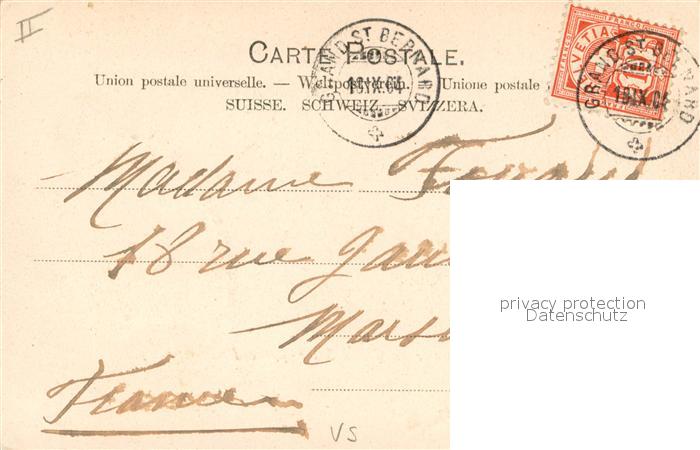 II
CARTE POSTALE.
Union postale universelle. — Weltpostverein. — Unione postale
SUISSE. SCHWEIZ. SVIZZERA.
GRAND ST BERNARD
FRANCO
GRAND ST BERNARD
Madame
18 rue
France
privacy protection
Datenschutz
VS